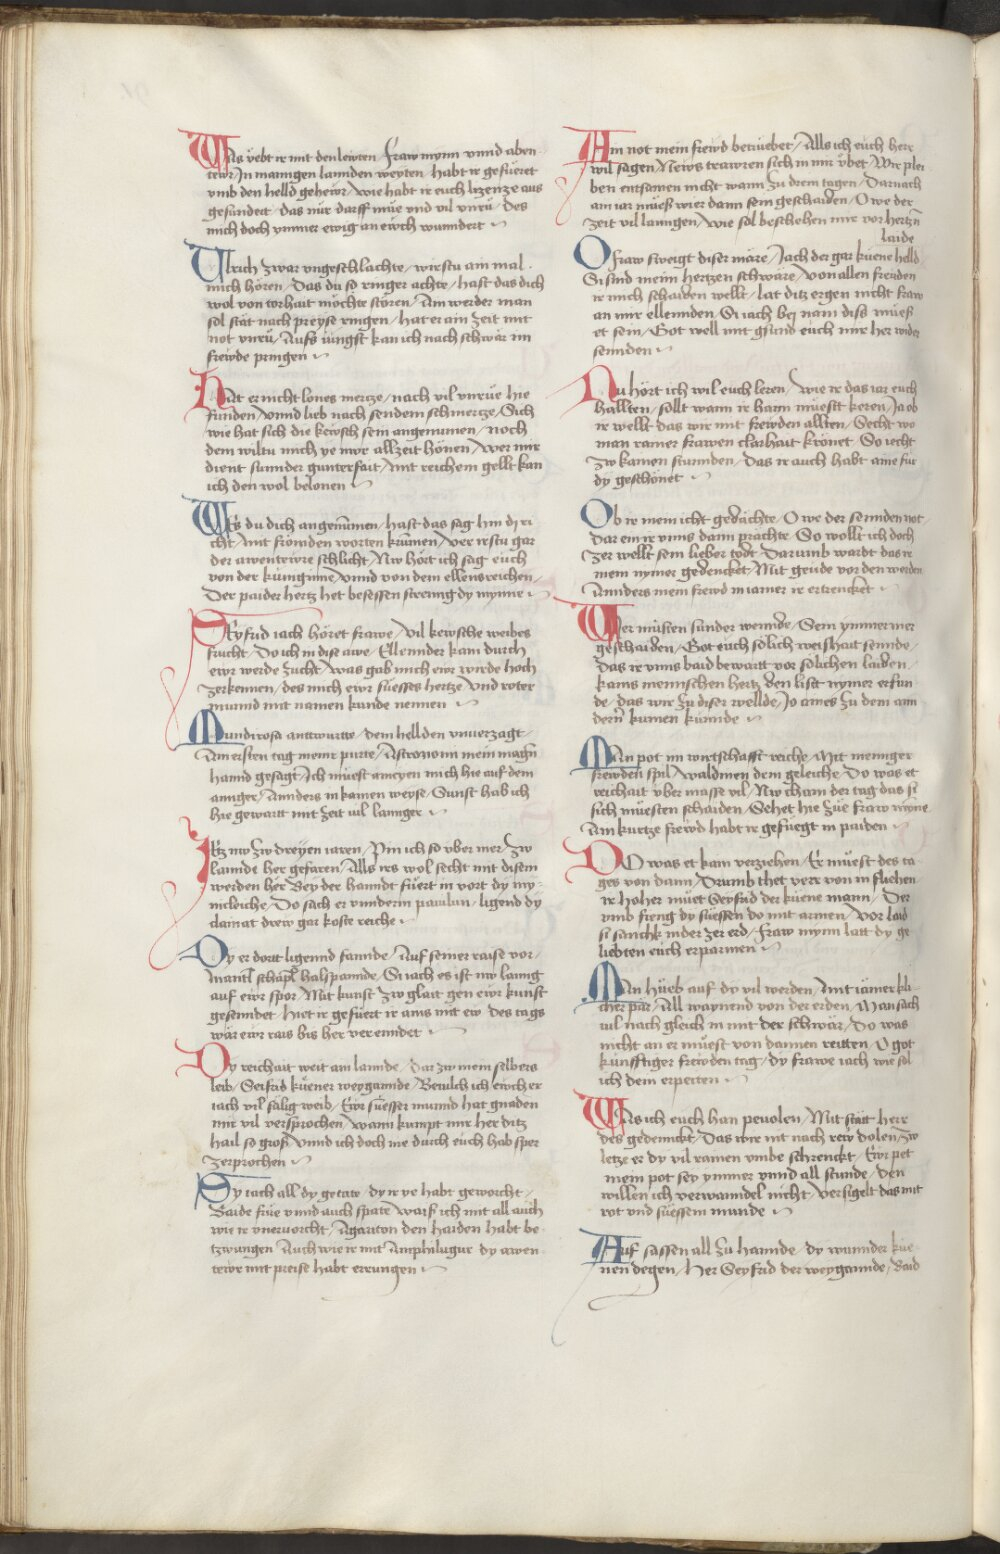 WAs vͤbt ir mit den lewten / Fraw mynn vnnd aben-
tewr / In manngen lannden weyten / habt ir gefueret
vmb den helld gehewr / wie habt ir euch
gesundert / das nur darff mue vnd vil vnrue / des
mich doch ymmer ewig an ewch wunndert
Vlrich zwar vngeschlachte / wirstu am mal
mich hören / Das du so ringer achte / hast das dich
wol von torhait möchte stören / Ain werder man
sol stät nach preyse ringen / hat er ain zeit mit
not vnrue / Aufs iungst kan ich nach schwär im
frewde pringen
HAt er nicht lones mertze / nach vil vnrue hie
funden / Vnnd lieb nach senndem schmertze / Sich
wie hat sich die kewsch sein angenumen / noch
dem wiltu mich ye mor allzeit hönen / Wer mir
dient sunnder gunterfait / mit reichem gellt kan
ich den wol belonen
WEs du dich angenumen / hast das sag hin dj ri-
cht / mit frömden worten krumen / ver restu gar
der awentewre schlicht / Nw hört ich sag euch
von der kunginne / vnnd von dem ellensreichen /
Der paider hertz het besessen strenng dy mynne
SEyfrid iach höret frawe / vil kewsche weibes
frucht / Do ich in dise awe / Ellennder kam durch
ewr werde zucht / was gab mich ewr wirde hoch
zerkennen / des mich ewr suesses hertze / vnd roter
munnd mit namen kunde nennen
Mundirosa anttwurtte / dem hellden vnuerzagt /
Am ersten tag meinr purte / Astronomi mein magn
hannd gesagt / Ich muest ameyen mich hie auf dem
annger / Annders in kainen weyse / Sunst hab ich
hie gewartt mit zeit vil lannger
IEtz nw zw dreyen iaren / Pin ich so vber mer / zw
lannde her gefaren / Alls irs wol secht mit disem
werden her / Bey der hanndt fuert in vort dy my-
nicleiche / Do sach er vnnderm paulun / ligend dy
clainat drew gar koste reiche
DY er dortt ligennd fannde / Auf seiner raise vor /
Mantl schäpl halspannde / Si iach es ist nw lanng
auf ewr spor / Mit kunst zw glait gen ewr kunst
gesenndet / Hiet ir gefuert ir ains mit ew des tags
wär ewr rais bis her verenndet
DY reichait weit am lannde / Dar zw mein selbers
leib / Seifrid kuener weygannde / Beuilch ich ewch er
iach vil sälig weib / Ewr suesser munnd hat gnaden
mir vil versprochen / wann kumpt mir her ditz
hail so groß / vnnd ich doch nie durch euch hab sper
zerprochen
SY iach all dy getate / dy ir ye habt geworcht /
Baide frue vnnd auch spate / wais ich mit all auch
wie ir vneruorcht / Agraiton den haiden habt be-
tzwungen / Auch wie ir mit Amphilugur dy awen-
tewr mit preise habt errungen
AIn not mein frewd betruebet / Alls ich euch herr
wil sagen / News trawren sich in mir vͤbet / Wir plei-
ben entsamen nicht wann zu drein tagen / Darnach
ain iar mueß wier dann sein geschaiden / O we der
zeit vil lanngen / wie sol beschehen mir vor hertzn
laide
O fraw sweigt diser märe / Iach der gar kuene helld
Si sind meim hertzen schwäre / Von allen freuden
ir mich schaiden wellt / lat ditz ergen nicht fraw
an mir ellennden / Si iach bej nam diß mueß
et sein / Got well mit gsund euch mir her wider
sennden
NU hört ich wil euch leren / wie ir das iar euch
hallten / söllt wann ir haim muestt keren / Ja ob
ir wellt das wir mit frewden allten / Secht wo
man rainer frawen clarhait krönet / So iecht
zw kainen stunnden / Das ir auch habt aine fur
dy geschönet
Ob ir mein icht gedächte / O we der sennden not /
Dar ein ir vnns dann prächte / So wollt ich doch
zer wellt sein lieber todt / Darumb wardt das ir
mein nymer gedenncket / Mit geude vor den werden
Annders mein frewd in iamer ir ertrencket
WIer musten sunder wennde / Sein ymmer mer
geschaiden / Got euch sölich weishait sennde /
Das ir vnns baid bewartt vor sölichen laiden /
kains mennschen hertz den listt nymer erfun-
de / das wir zu diser wellde / Jo aines zu dem ann-
dern kumen kunnde
MAn pot im wirtschafft reiche / Mit meniger
frewden spil / Waldmen dem geleiche / Do was et
reichait vber masse vil / Nw cham der tag das si
sich muesten schaiden / Sehet hie zue fraw myne
Ain kurtze frewd habt ir gefuegt in paiden
DO was et kain verziehen / Er muest des ta-
ges von dann / Drumb thet verr von in fliehen
ir hoher muet Seyfrid der kuene mann / Der
vmb fieng dy suessen do mit armen / Vor laid
si sanchk nider zer erd / Fraw mynn latt dy ge-
liebten euch erparmen
MAn hueb auf dy vil werden / Mit iämerkli-
cher par / All waynend von der erden / Man sach
uil nach gleich in mit der schwär / Do was
nicht an er muest von dannen reitten / O got
kunfftiger frewden tag / dy frawe iach wie sol
ich dein erpeiten
WAs ich euch han peuolen / Mit stätt herr
des gedennckt / Das irre nit nach rew dolen / zw
letze er dy vil rainen vmbe schrenckt / Ewr pet
mein pot sey ymmer vnnd all stunde / Den
willen ich verwanndel nicht / versigelt das mit
rot vnd suessem munde
AUf sassen all zu hannde / dy wunnder kue-
nen degen / Her Seyfrid der weygannde / Baid